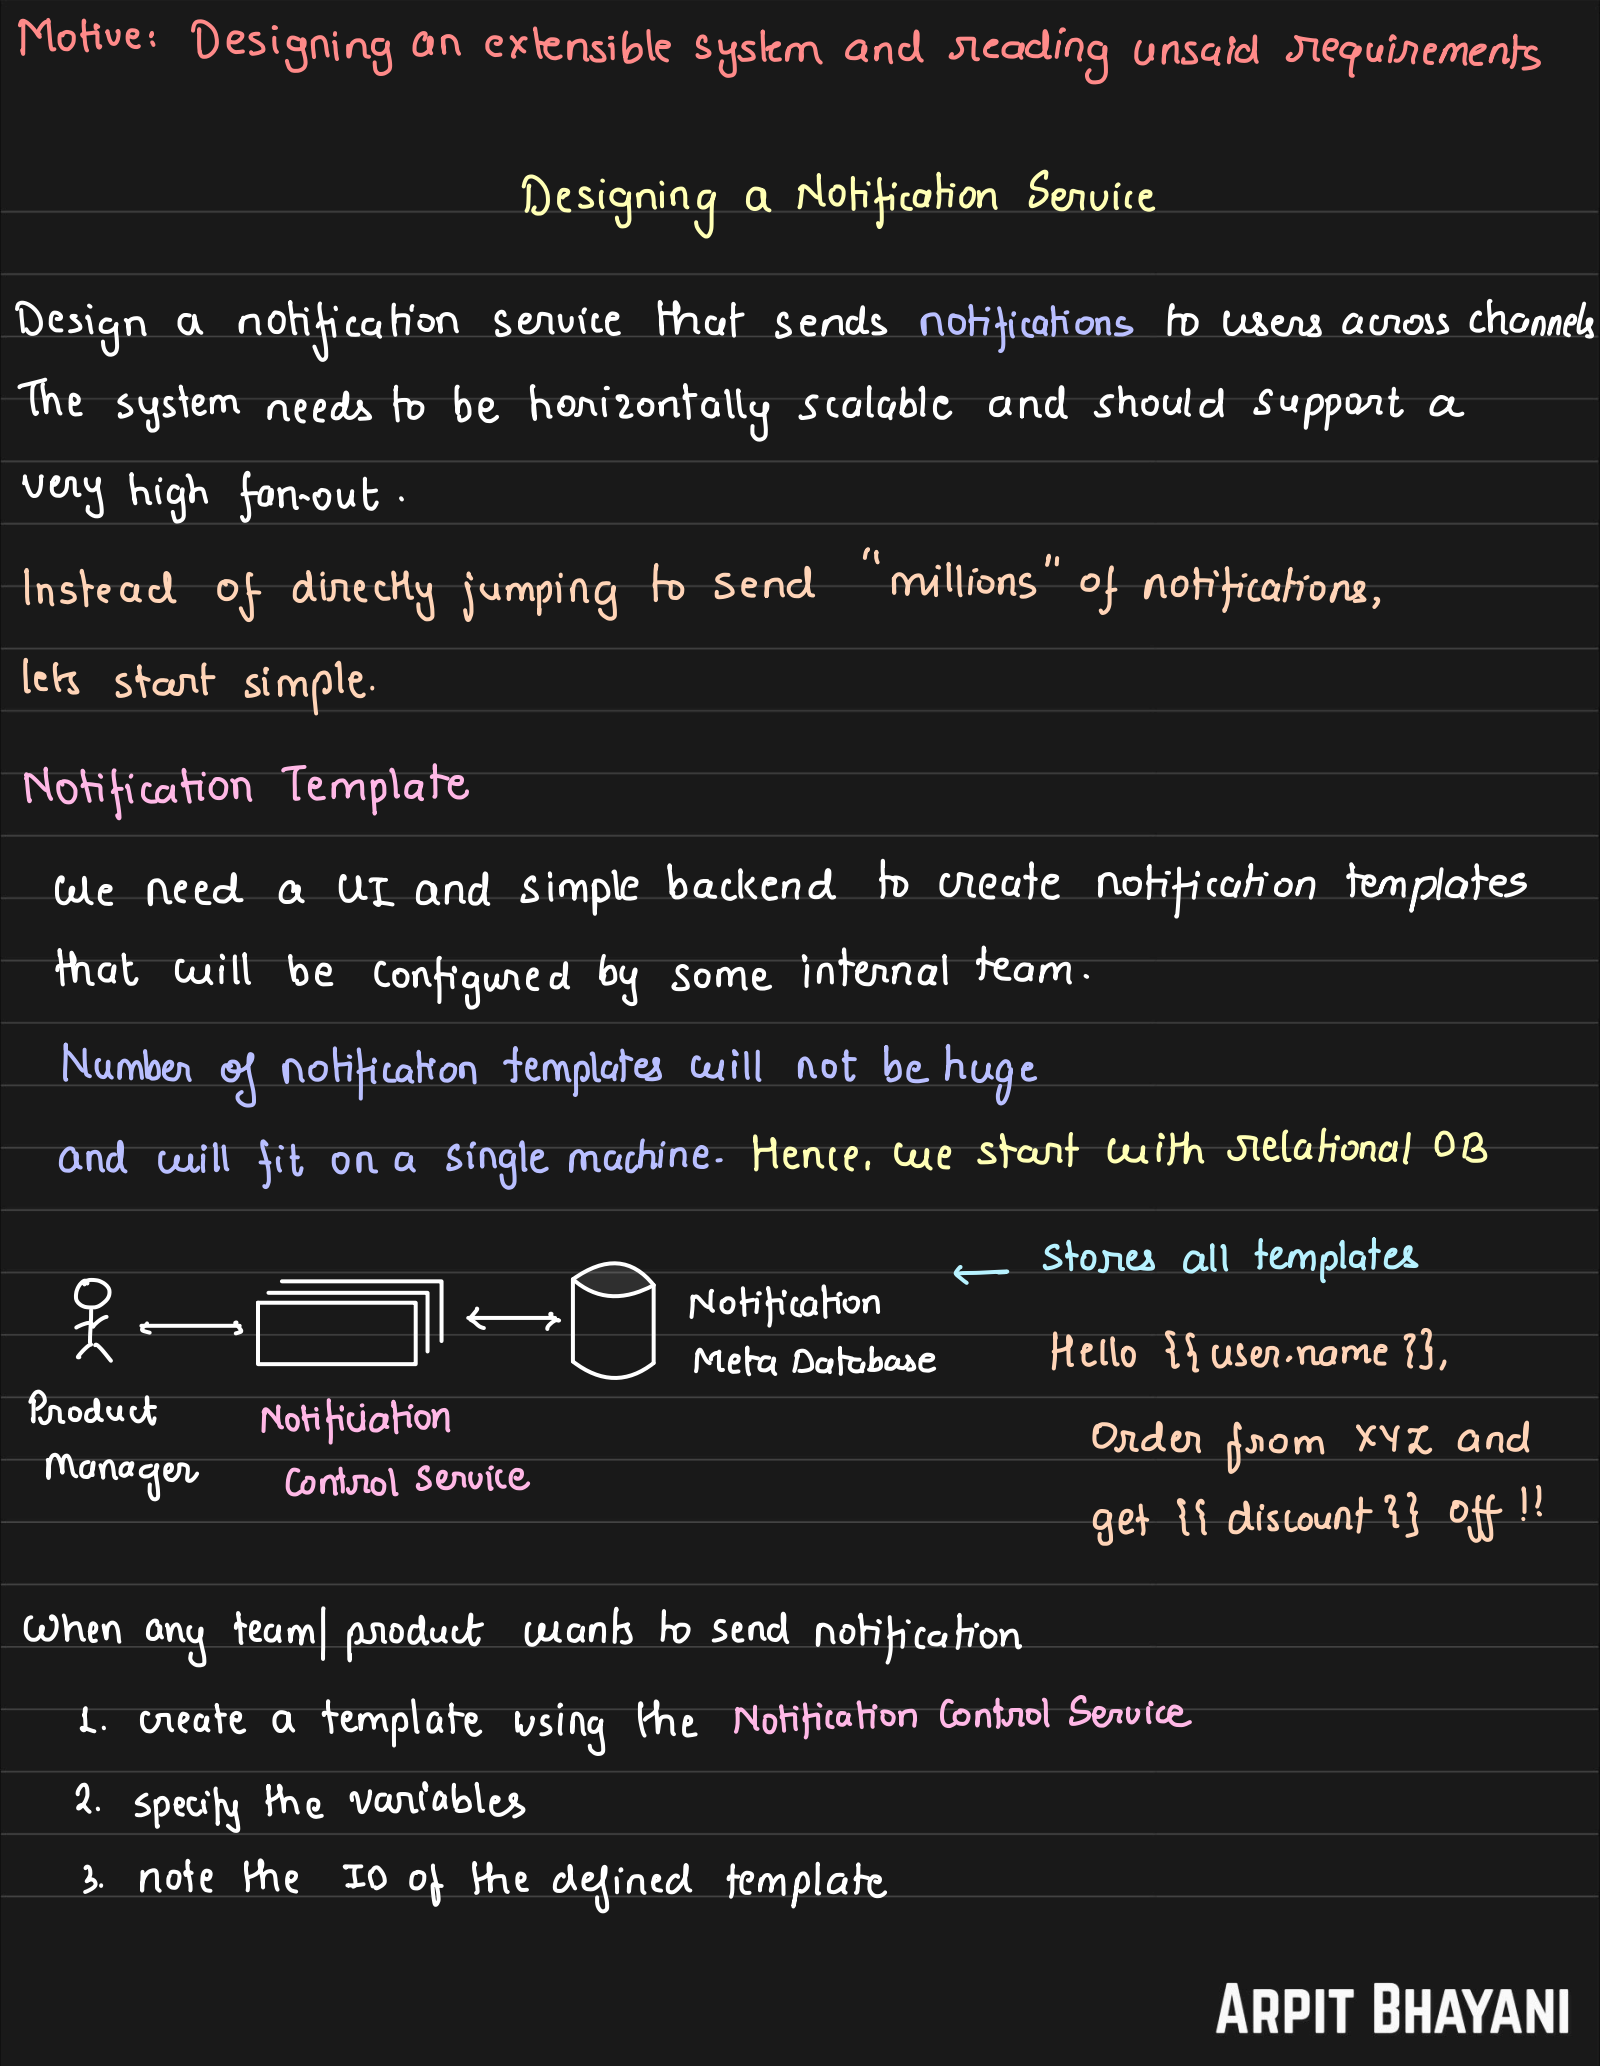 Motive: Designing an extensible system and reading unsaid requirements
Designing a Notification Service
Design a notification service that sends notifications to users across channels
The system needs to be horizontally scalable and should support a
very high fan-out.
Instead of directly jumping to send "millions" of notifications,
lets start simple.
Notification Template
We need a UI and simple backend to create notification templates
that will be configured by some internal team.
Number of notification templates will not be huge
and will fit on a single machine. Hence, we start with relational DB
← Stores all templates
Notification
Meta Database
Hello {{user.name}},
Product
Manager
Notificiation
Control Service
Order from XYZ and
get {{discount}} off!!
When any team/product wants to send notification
1. create a template using the Notification Control Service
2. specify the variables
3. note the ID of the defined template
ARPIT BHAYANI